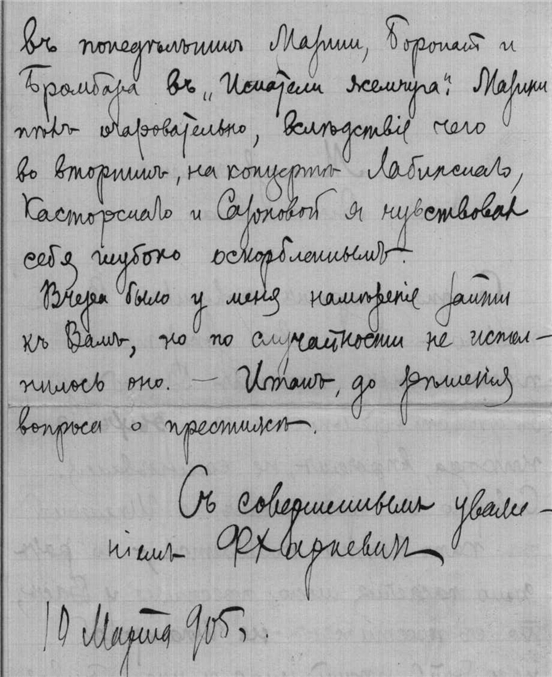 въ понедѣльникъ Марини, Боронатъ и
Бромбара въ „Искатели жемчуга“. Марини
пѣлъ очаровательно, вслѣдствіе чего
во вторникъ, на концертѣ Лабинскаго,
Касторскаго и Сазоновой я чувствовалъ
себя глубоко оскорбленнымъ.
Вчера было у меня намѣреніе зайти
къ Вамъ, но по случайности не испол-
нилось оно. — Итакъ, до рѣшенія
вопроса о престижѣ.
Съ совершеннымъ уваже-
ніемъ ФХаркевичъ
10 Марта 905 г.